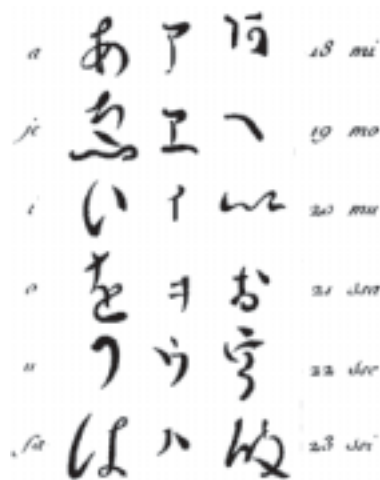 a あ ア 阿 18 mi
je ゑ ヱ へ 19 mo
i い イ 以 20 mu
o を ヲ お 21 ssa
u う ウ 宇 22 sse
fa は ハ 23 ssi